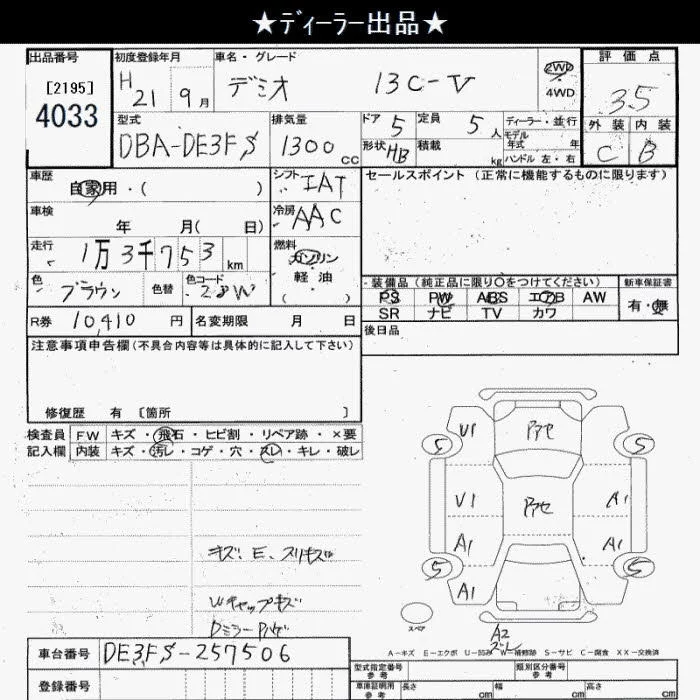 ★ディーラー出品★
出品番号
[2195]
4033
初度登録年月
H 21 9月
車名・グレード
デミオ 13C-V
2WD
4WD
評価点
3.5
外装 内装
C B
型式
DBA-DE3FS
排気量
1300 cc
ドア 5
定員 5 人
形状 HB
積載 kg
ディーラー・並行
モデル年式 年
ハンドル 左・右
車歴
自家用・( )
シフト
IAT
セールスポイント (正常に機能するものに限ります)
車検
年 月( 日)
冷房
AAC
走行
1万3千753 km
燃料
ガソリン
軽油
( )
色
ブラウン
色替
色コード
28W
装備品(純正品に限り○をつけてください)
PS PW ABS エアB AW
SR ナビ TV カワ
新車保証書
有・無
R券 10,410 円
名変期限 月 日
後日品
注意事項申告欄(不具合内容等は具体的に記入して下さい)
修復歴 有 〔箇所 〕
検査員 FW キズ・飛石・ヒビ割・リペア跡・×要
記入欄 内装 キズ・汚レ・コゲ・穴・スレ・キレ・破レ
U1
S S
V1 A1
A1 A1
S S
A1
キズ、E、スリキズ
Wキャップキズ
スペア
A2
A-キズ E-エクボ U-凹み W-補修跡 S-サビ C-腐食 XX-交換済
車台番号 DE3FS-257506
登録番号
型式指定番号
参考
類別区分番号
参考
車庫証明用
参考
長さ cm 幅 cm 高さ cm